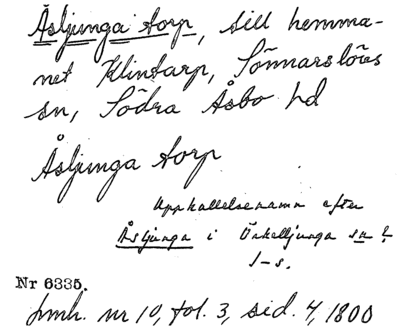 Åsljunga torp, till hemma-
net Klintarp, Sönnarslövs
sn, Södra Åsbo hd
Åsljunga torp
Uppkallelsenamn efter
Åsljunga i Örkelljunga sn?
J-s.
Nr 6335.
jmh. nr 10, fol. 3, sid. 4, 1800